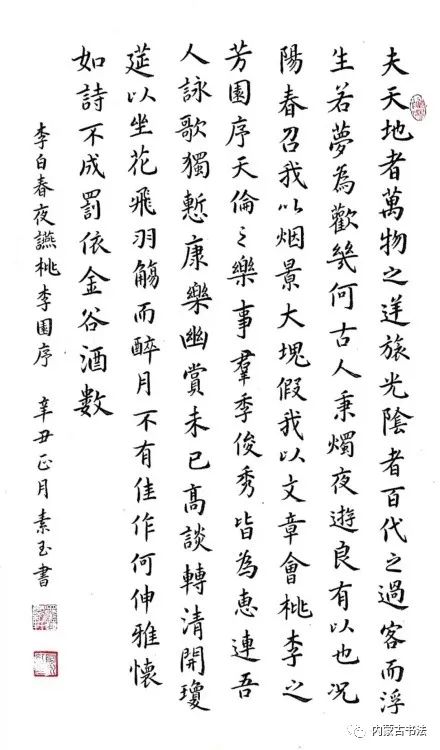 夫天地者萬物之逆旅光陰者百代之過客而浮
生若夢為歡幾何古人秉燭夜遊良有以也况
陽春召我以烟景大塊假我以文章會桃李之
芳園序天倫之樂事羣季俊秀皆為惠連吾
人詠歌獨慙康樂幽賞未已高談轉清開瓊
莚以坐花飛羽觴而醉月不有佳作何伸雅懷
如詩不成罰依金谷酒數
李白春夜讌桃李園序 辛丑正月素玉書
内蒙古书法